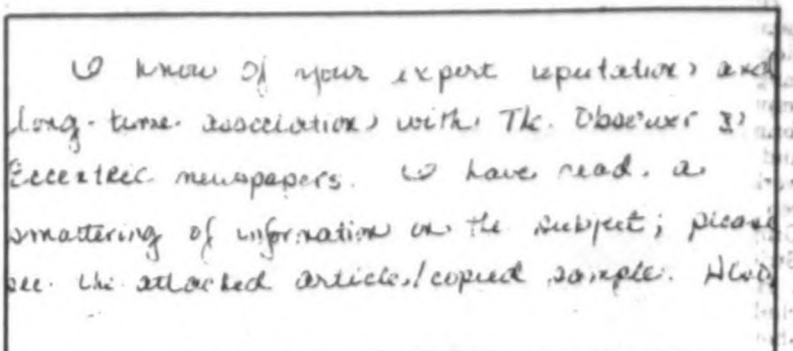 I know of your expert reputation and
long-time association with The Observer &
Eccentric newspapers. I have read a
smattering of information on the subject; please
see the attached article/copied sample. Also,